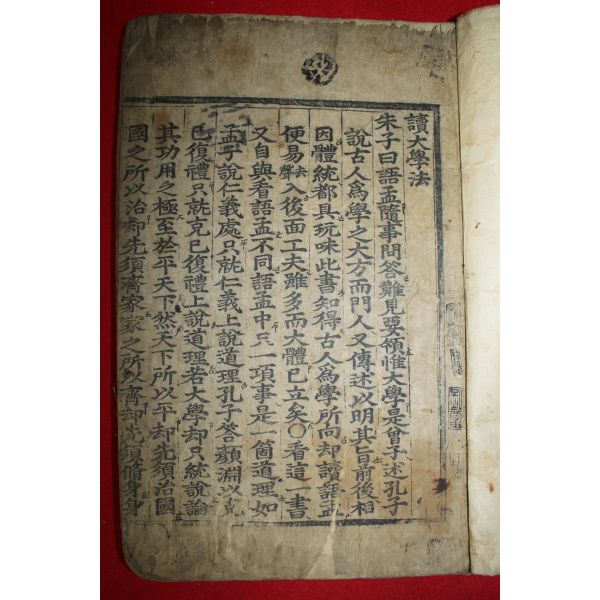 讀大學法
朱子曰語孟隨事問答難見要領惟大學是曾子述孔子
說古人爲學之大方而門人又傳述以明其旨前後相
因體統都具玩味此書知得古人爲學所向却讀語孟
便易去聲入後面工夫雖多而大體已立矣○看這一書
又自與看語孟不同語孟中只一項事是一箇道理如
孟子說仁義處只就仁義上說道理孔子答顏淵以克
已復禮只就克已復禮上說道理若大學却只統說論
其功用之極至於平天下然天下所以平却先須治國
國之所以治却先須齊家家之所以齊却先須修身身